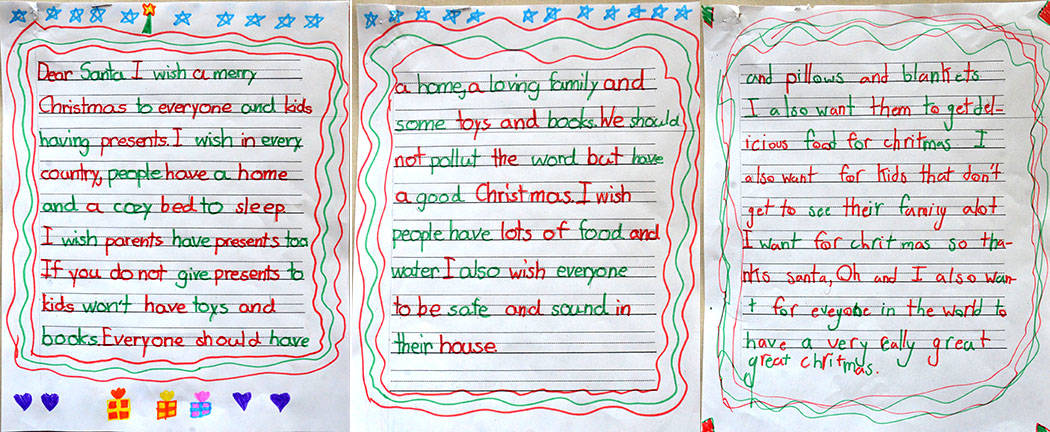 Dear Santa I wish a merry
Christmas to everyone and kids
having presents. I wish in every
country, people have a home
and a cozy bed to sleep
I wish parents have presents too
If you do not give presents to
kids won't have toys and
books. Everyone should have
a home, a loving family and
some toys and books. We should
not pollut the word but have
a good Christmas. I wish
people have lots of food and
water I also wish everyone
to be safe and sound in
their house.
and pillows and blankets
I also want them to get del-
icious food for chritmas I
also want for kids that don't
get to see their family alot
I want for chritmas so tha-
nks santa, Oh and I also wan-
t for eveyone in the world to
have a very really great
great chritmas.